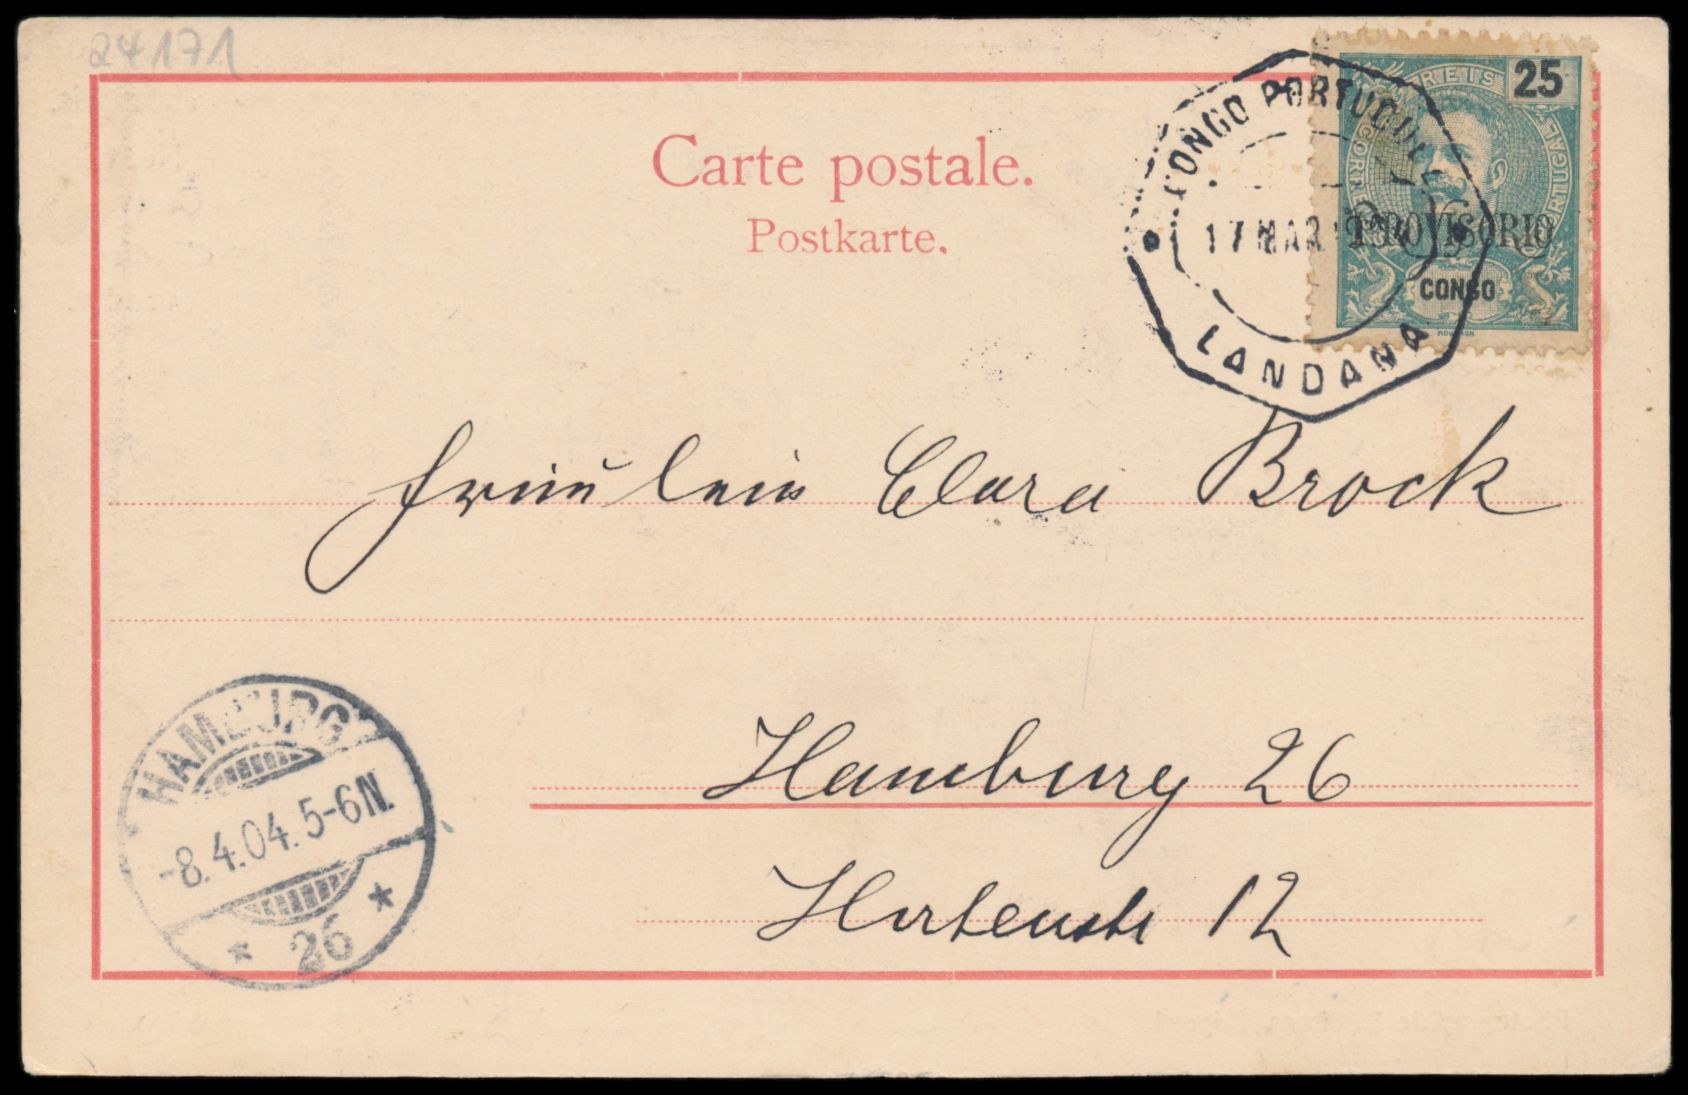 24171
Carte postale.
Postkarte.
CONGO PORTUGUEZ
17 MAR
LANDANA
REIS 25
CORREIOS PORTUGAL
PROVISORIO
CONGO
MOUCHON
Fräulein Clara Brock
Hamburg 26
Hirtenstr 12
HAMBURG
-8.4.04. 5-6N.
* 26 *